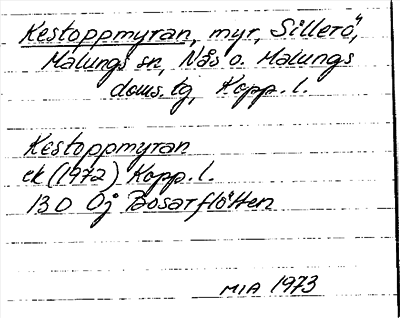 Kestoppmyran, myr, Sillerö,
Malungs sn, Nås o. Malungs
doms. tg, Kopp. l.
Kestoppmyran
ek (1972) Kopp. l.
13 D 0j Bosarflötten
MIA 1973